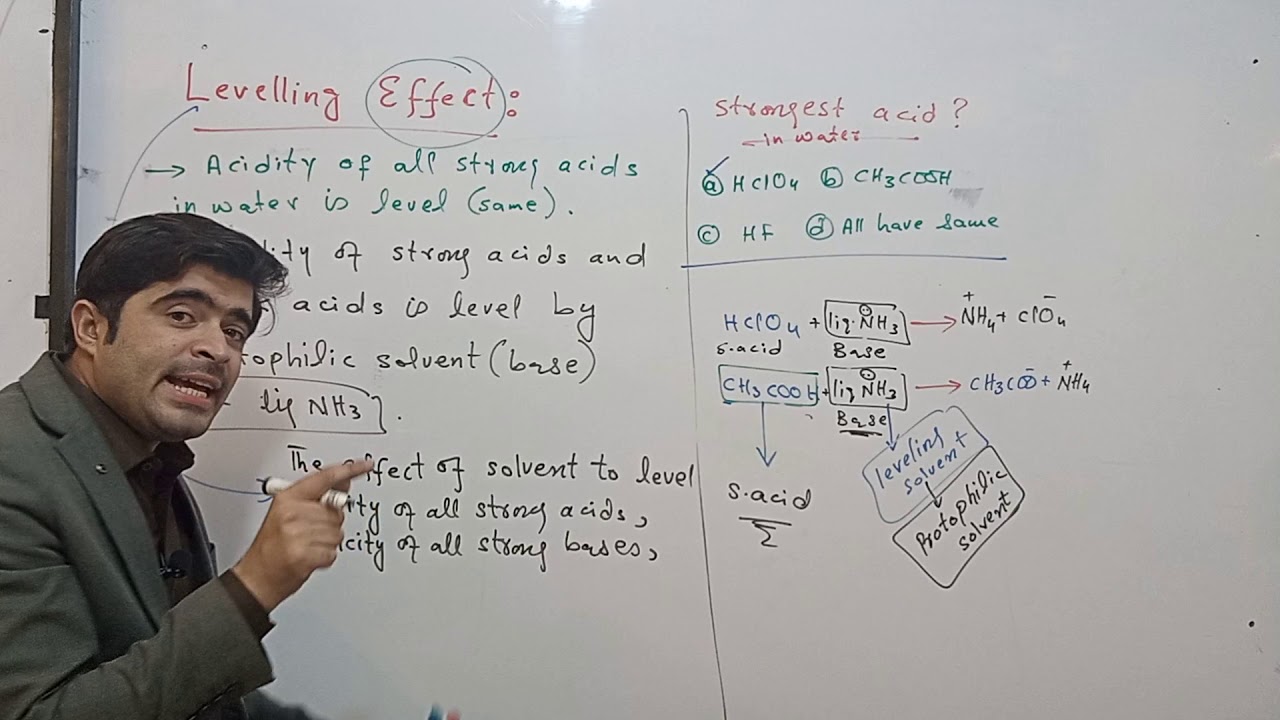 Levelling Effect:
→ Acidity of all strong acids
in water is level (same).
of strong acids and
acids is level by
solvent (base)
liq NH3 .
The effect of solvent to level
of all strong acids,
of all strong bases,
strongest acid?
in water
ⓐ HClO4 ⓑ CH3COOH
ⓒ HF ⓓ All have same
HClO4 + liq. NH3 → NH4+ + ClO4-
s.acid Base
CH3COOH + liq NH3 → CH3COO- + NH4+
Base
leveling
solvent
Protophilic
solvent
s.acid